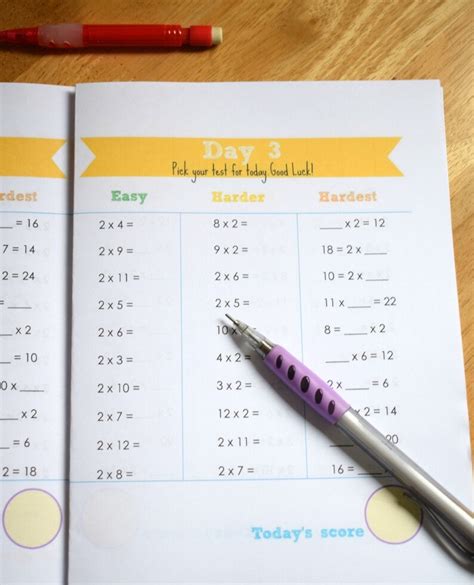 rdest
= 16
7 = 14
2 = 24
___ x 2
= 10
0 x ___
___ x 2
= 6
2 = 18
Day 3
Pick your test for today. Good Luck!
Easy Harder Hardest
2 x 4 = 8 x 2 = ___ x 2 = 12
2 x 9 = 9 x 2 = 18 = 2 x ___
2 x 11 = 2 x 6 = 10 = 2 x ___
2 x 5 = 2 x 5 = 11 x ___ = 22
2 x 6 = 10 x 8 = ___ x 2
2 x 3 = 4 x 2 ___ x 6 = 12
2 x 10 = 3 x 2 =
2 x 7 = 12 x 2 = x 2 = 14
2 x 12 = 2 x 11 = 20
2 x 8 = 2 x 7 = 16 = ___
Today's score